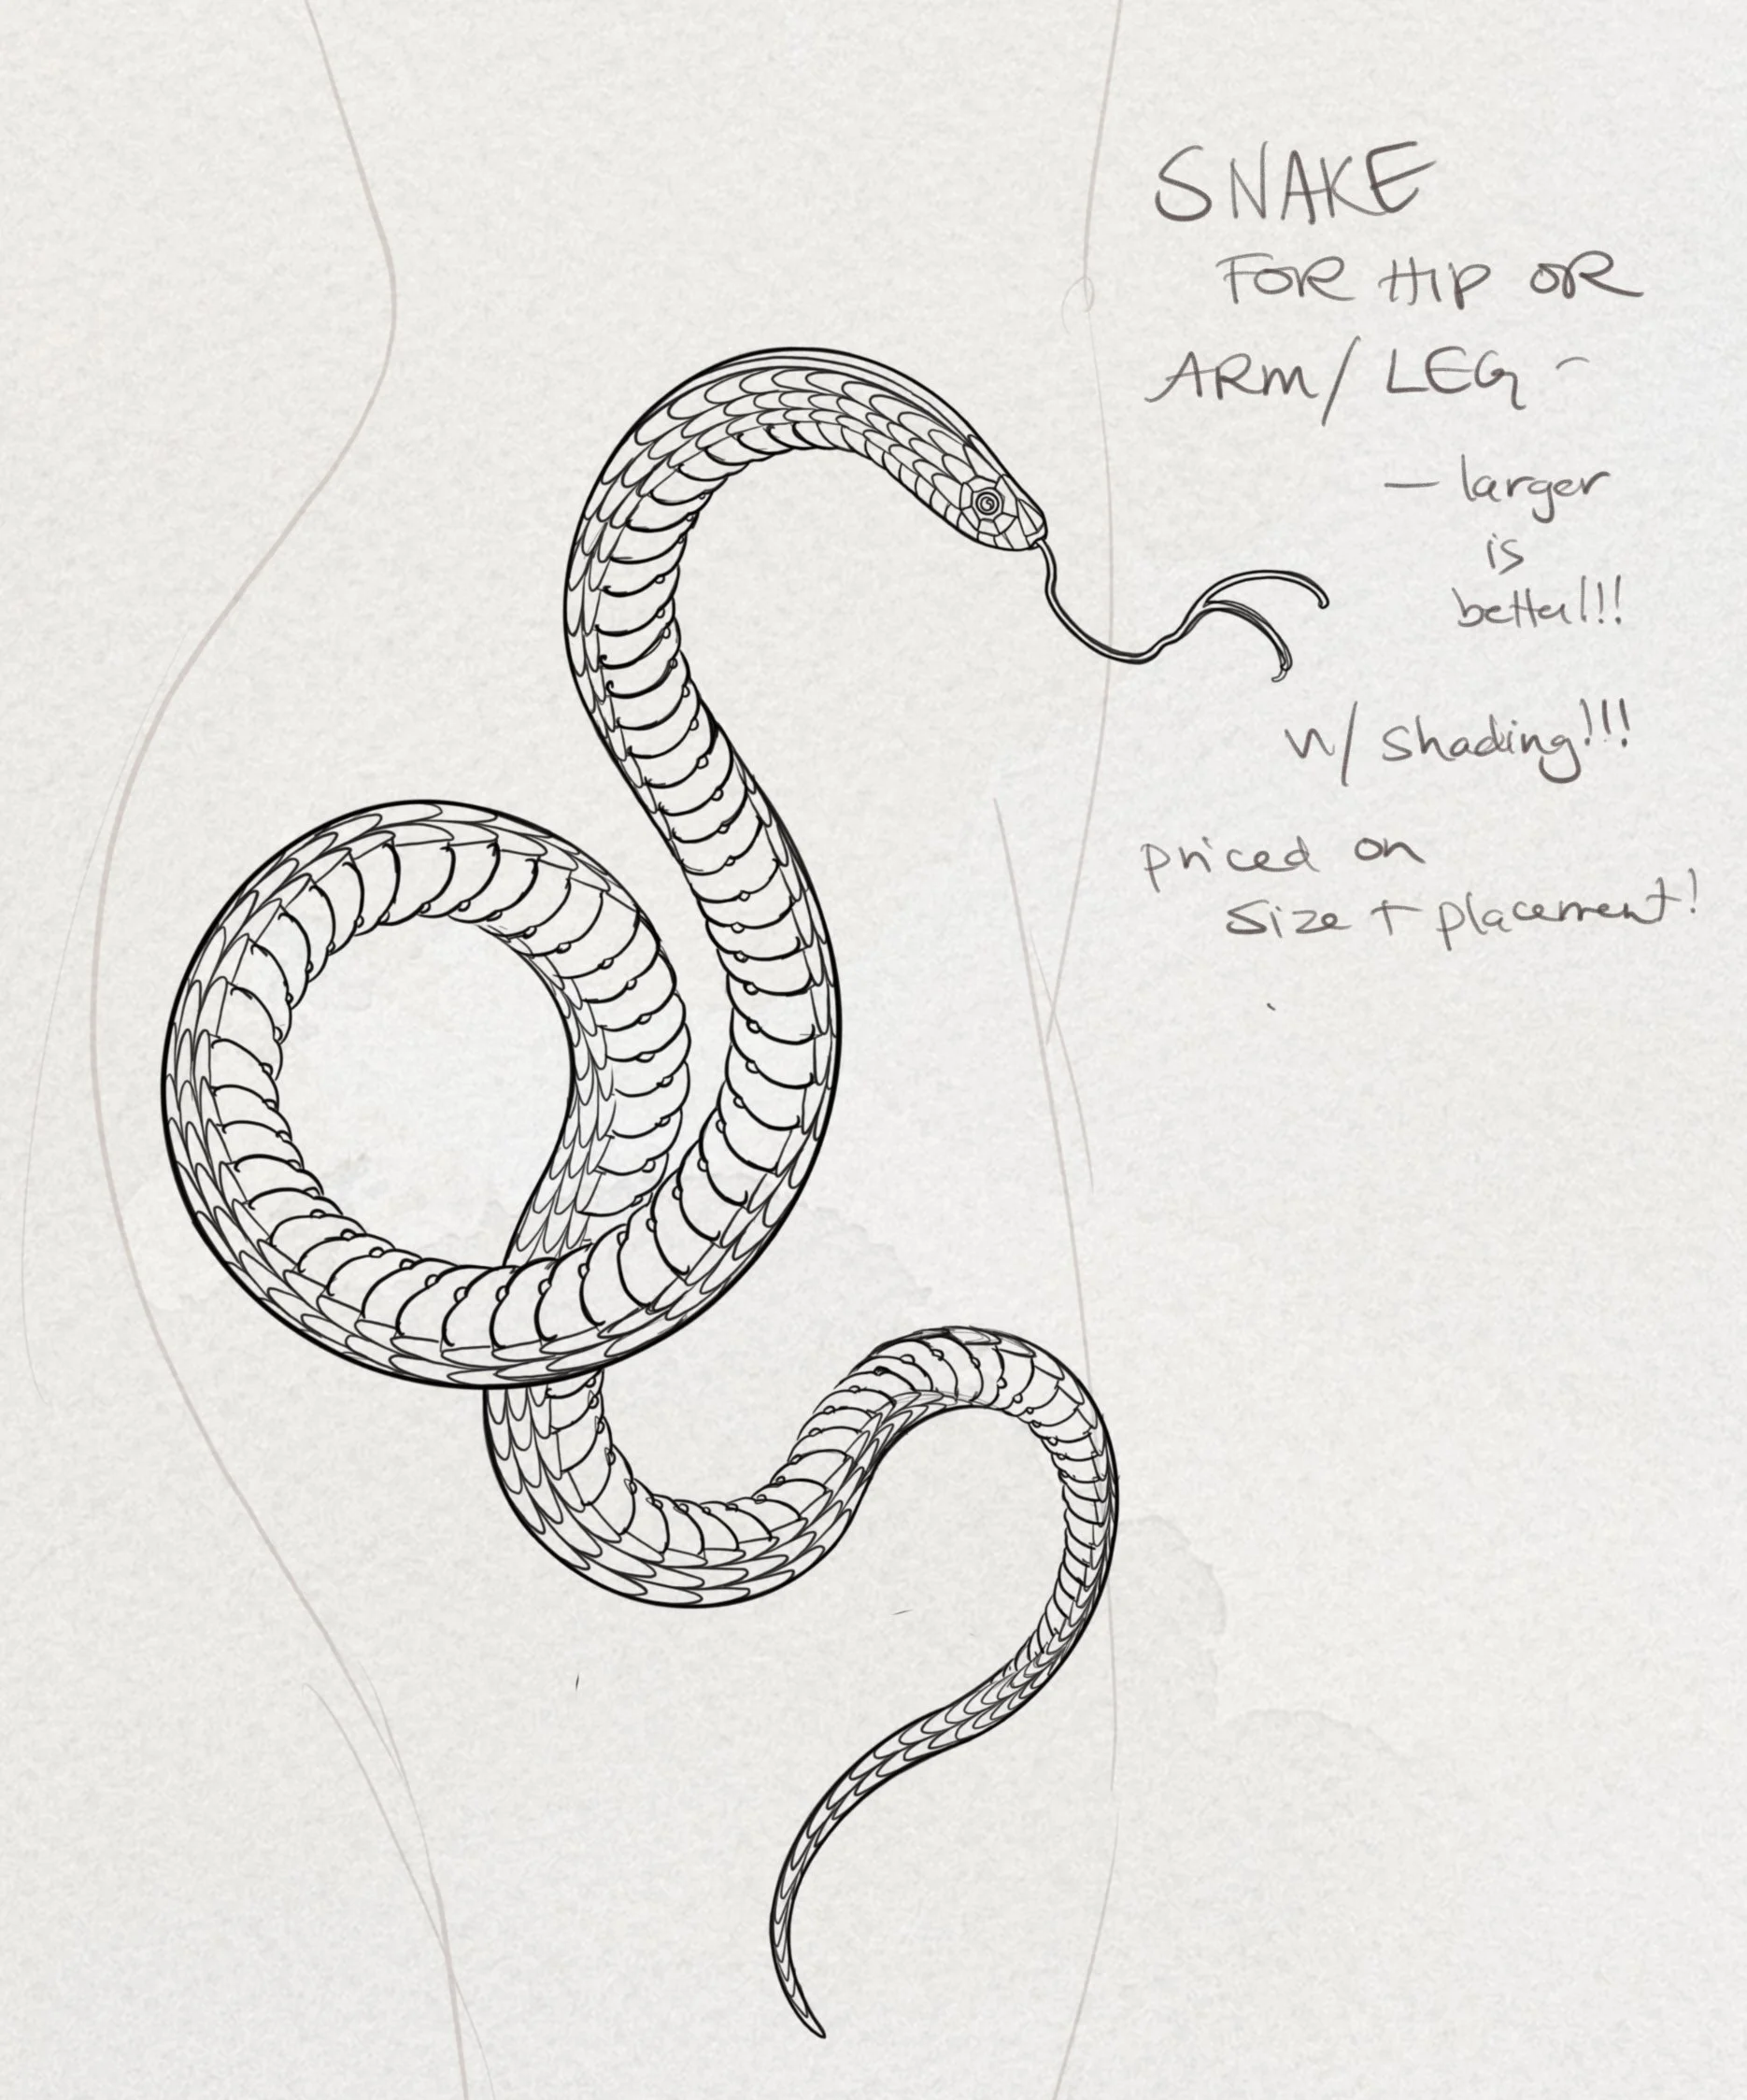 SNAKE
FOR HIP OR
ARM/LEG -
— larger
is
better!!!
w/ shading!!!
priced on
size + placement!